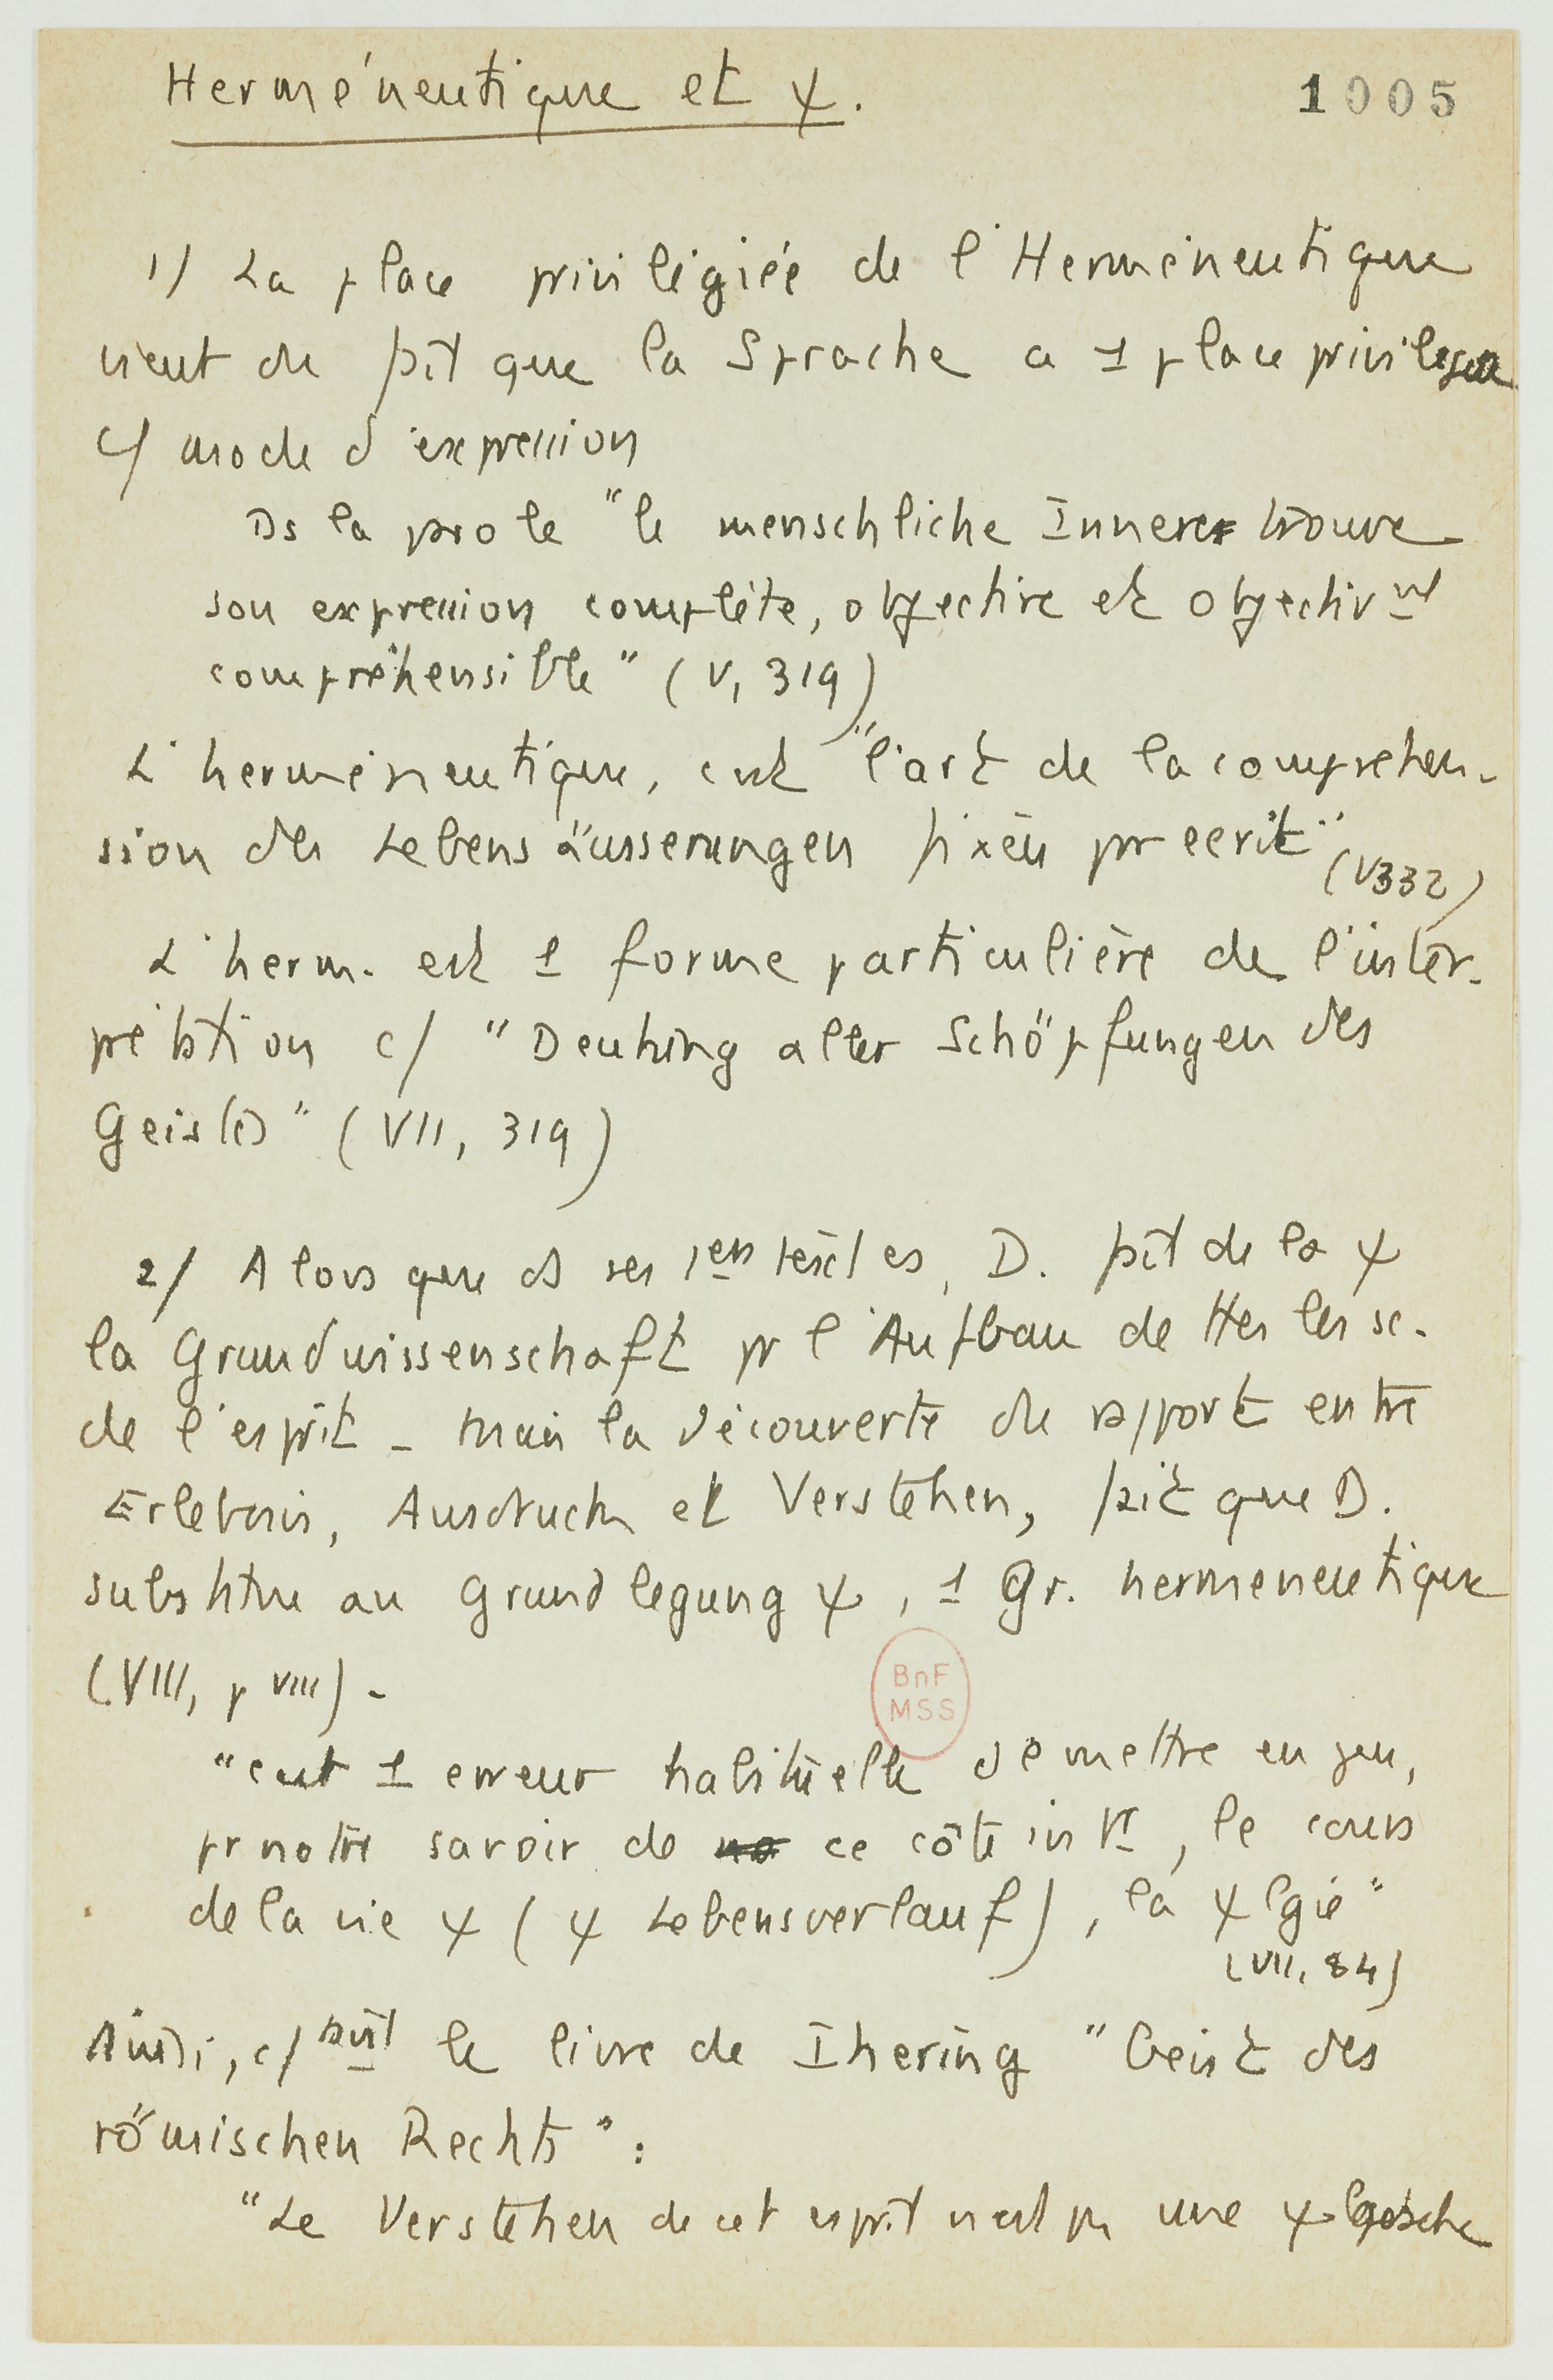 Herméneutique et ψ.
1005
1/ La place privilégiée de l'Herméneutique
vient du fait que la Sprache a 1 place privilégiée
c/ mode d'expression
Ds la parole "le menschliche Innere trouve
son expression complète, objective et objectivnt
compréhensible" (V, 319)
L'herméneutique, c'est "l'art de la compréhen-
sion des Lebensäusserungen fixées pr écrit" (V 332)
L'herm. est 1 forme particulière de l'inter-
prétation c/ "Deutung aller Schöpfungen des
Geistes" (VII, 319)
2/ Alors que ds ses 1ers textes, D. fait de la ψ
la Grundwissenschaft pr l'Aufbau de ttes les sc.
de l'esprit - mais la découverte du rapport entre
Erlebnis, Ausdruck et Verstehen, fait que D.
substitue au Grundlegung ψ, 1 Gr. hermeneutique
(VIII, p VIII).
BnF
MSS
"c'est 1 erreur habituelle de mettre en jeu,
pr notre savoir de ce côté intr, le cours
de la vie ψ (ψ Lebensverlauf), la ψlgie"
(VII, 84)
Ainsi, c/ le livre de Ihering "Geist des
römischen Rechts":
"Le Verstehen de cet esprit n'est pas une ψlogische